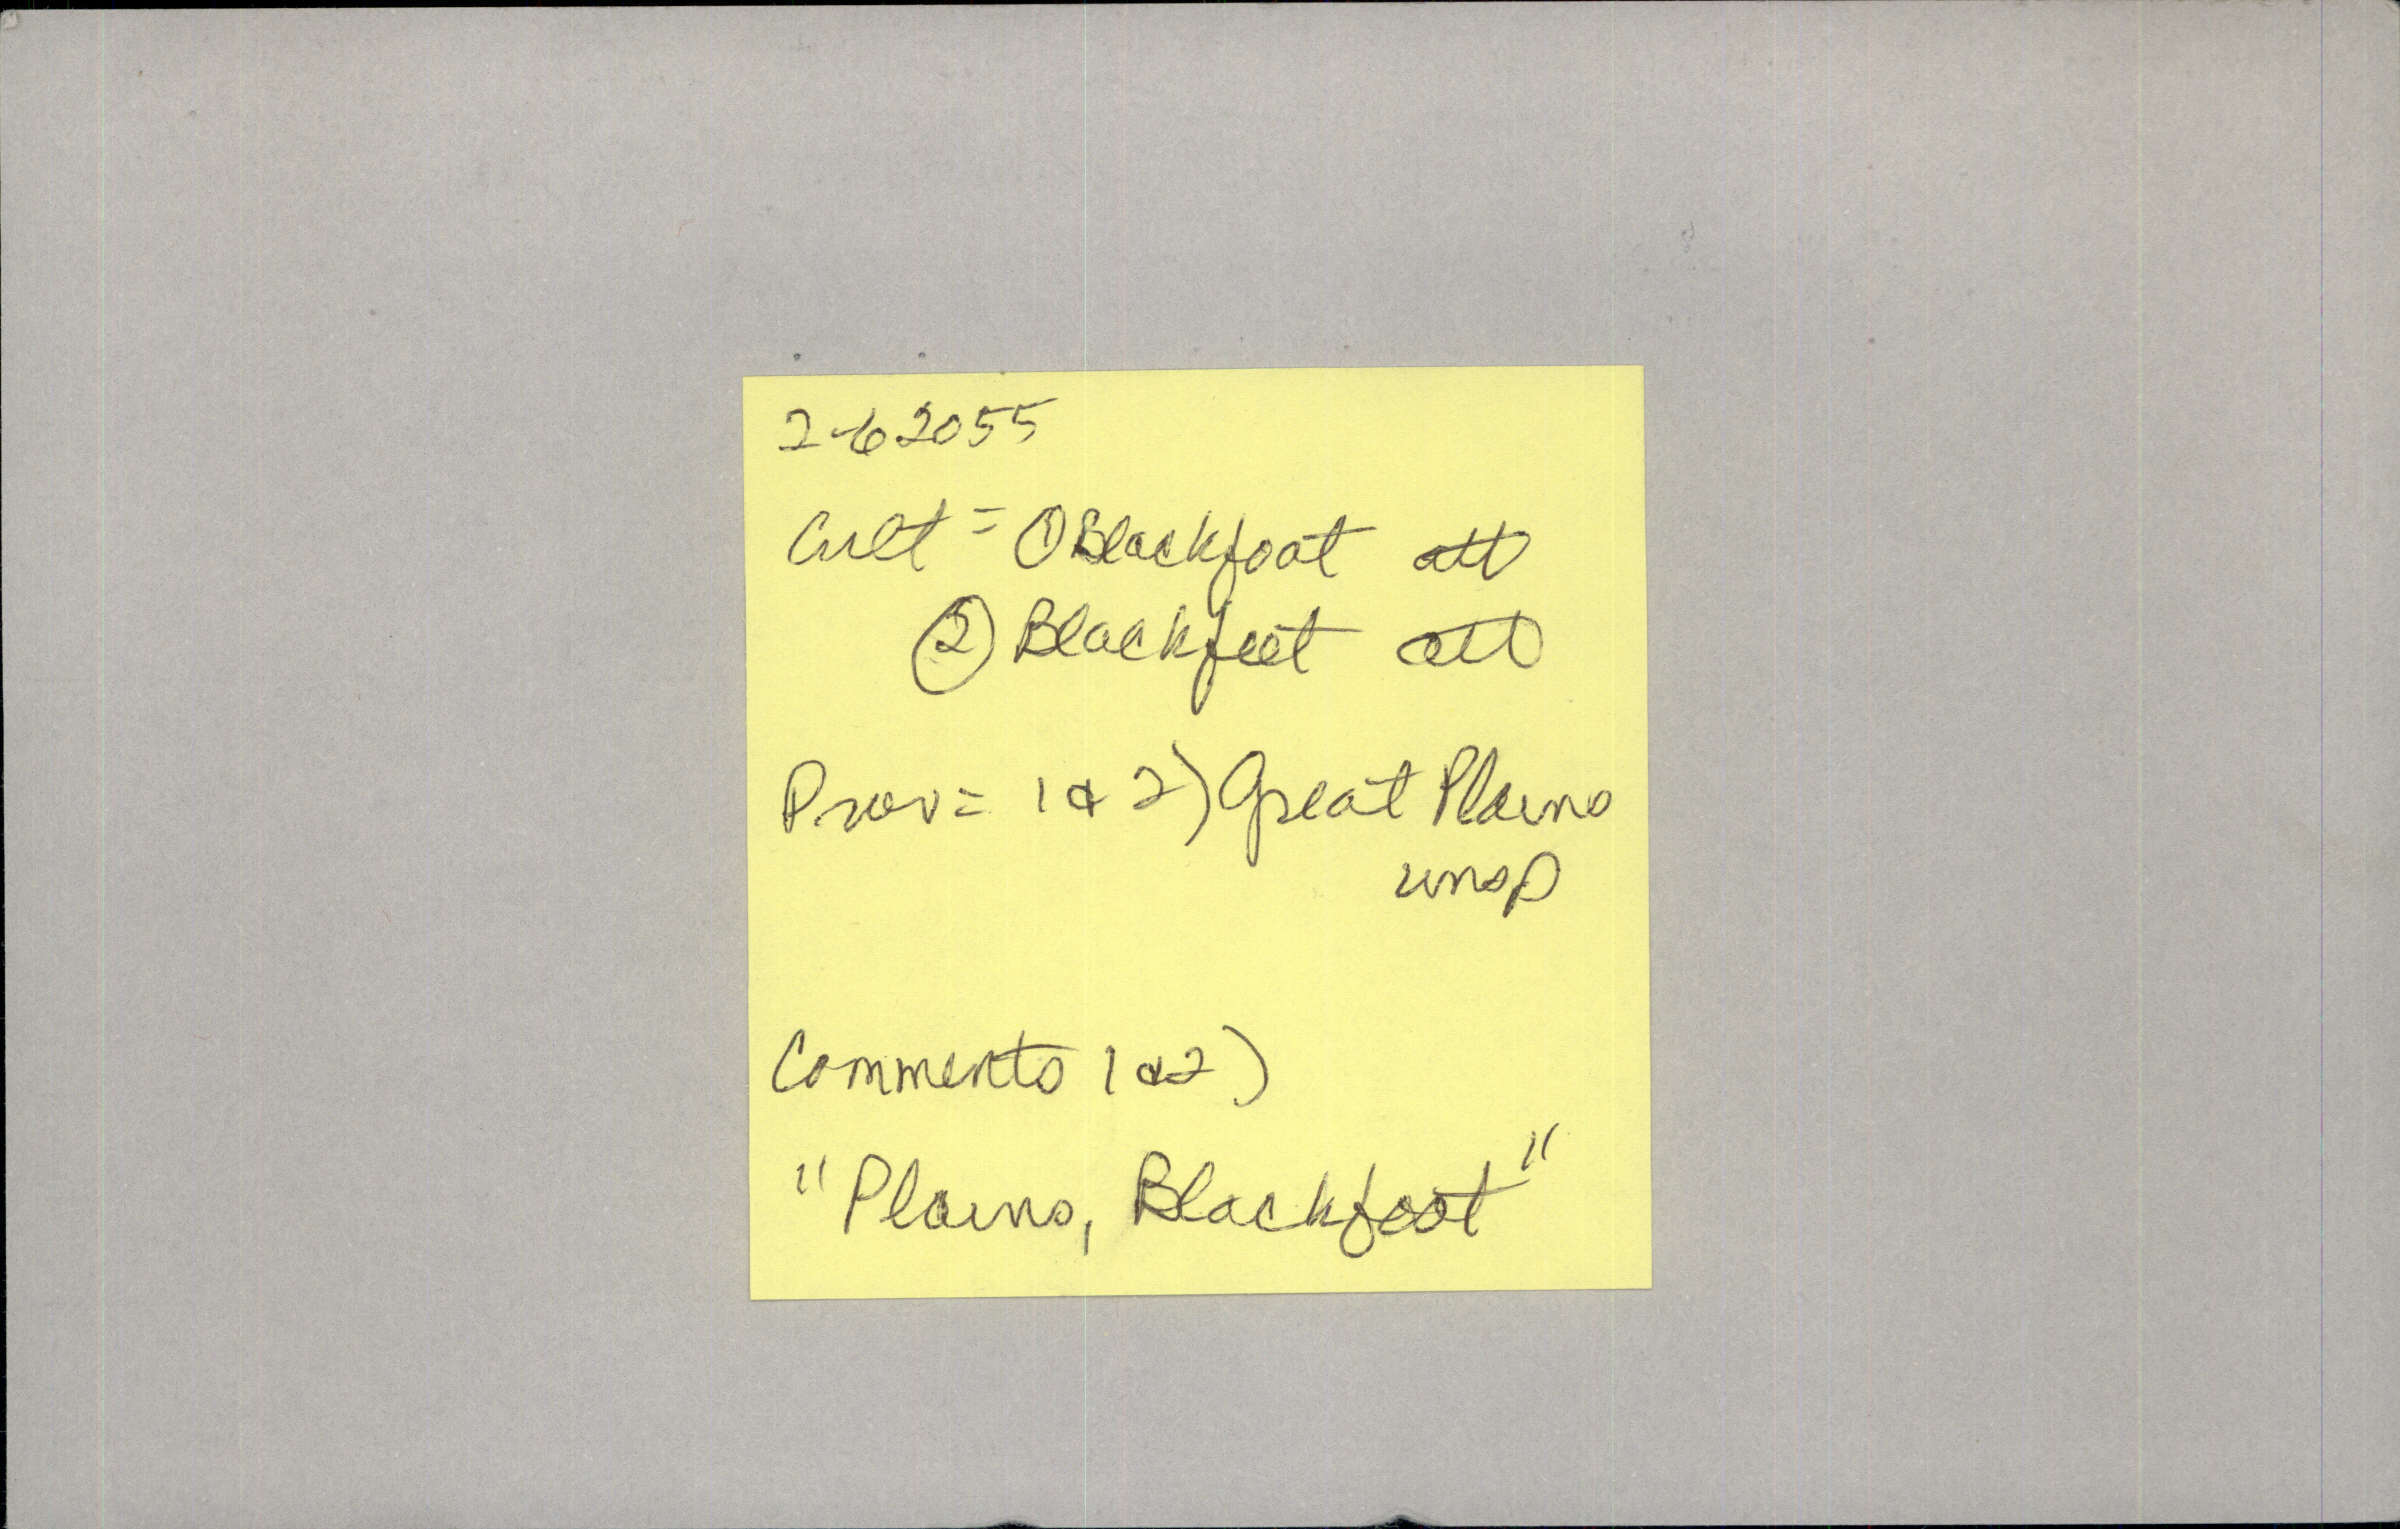 2-62055
Cult = ① Blackfoot att
② Blackfeet att
Prov = 1 & 2) Great Plains
unsp
Comments 1 & 2)
"Plains, Blackfoot"